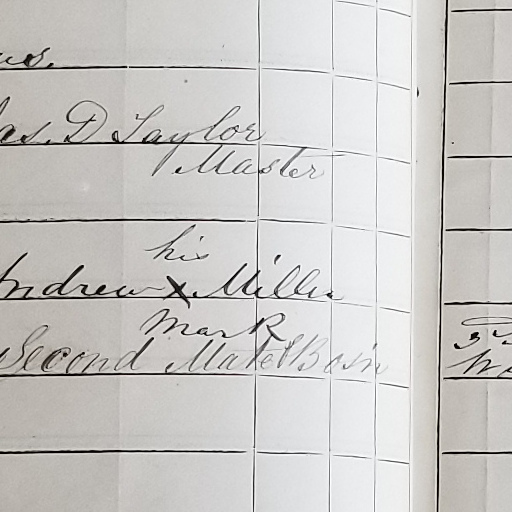 Jas. D Taylor
Master
his
Andrew X Miller
mark
Second Mate & Bosin